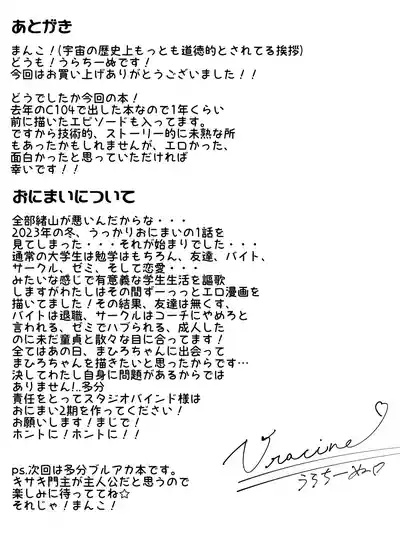 あとがき
まんこ！(宇宙の歴史上もっとも道徳的とされてる挨拶)
どうも！うらちーぬです！
今回はお買い上げありがとうございました！！
どうでしたか今回の本！
去年のC104で出した本なので1年くらい
前に描いたエピソードも入ってます。
ですから技術的、ストーリー的に未熟な所
もあったかもしれませんが、エロかった、
面白かったと思っていただければ
幸いです！！
おにまいについて
全部緒山が悪いんだからな・・・
2023年の冬、うっかりおにまいの1話を
見てしまった・・・それが始まりでした・・・
通常の大学生は勉学はもちろん、友達、バイト、
サークル、ゼミ、そして恋愛・・・
みたいな感じで有意義な学生生活を謳歌
しますがわたしはその間ずーっっとエロ漫画を
描いてました！その結果、友達は無くす、
バイトは退職、サークルはコーチにやめろと
言われる、ゼミでハブられる、成人した
のに未だ童貞と散々な目に合ってます！
全てはあの日、まひろちゃんに出会って
まひろちゃんを描きたいと思ったからです…
決してわたし自身に問題があるからでは
ありません!..多分
責任をとってスタジオバインド様は
おにまい2期を作ってください！
お願いします！まじで！
ホントに！ホントに！！
Vracine♡
うらちーぬ
ps.次回は多分ブルアカ本です。
キサキ門主が主人公だと思うので
楽しみに待っててね☆
それじゃ！まんこ！